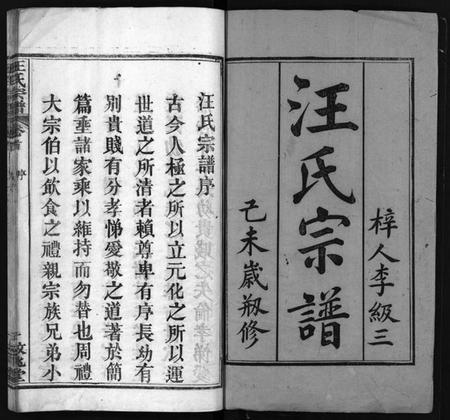 梓人李級三
汪氏宗譜
己未歲剏修
汪氏宗譜序
古今人極之所以立元化之所以運
世道之所清者賴尊卑有序長幼有
別貴賤有分孝悌愛敬之道著於簡
篇垂諸家乘以維持而勿替也周禮
大宗伯以飲食之禮親宗族兄弟小
汪氏宗譜
卷首
序